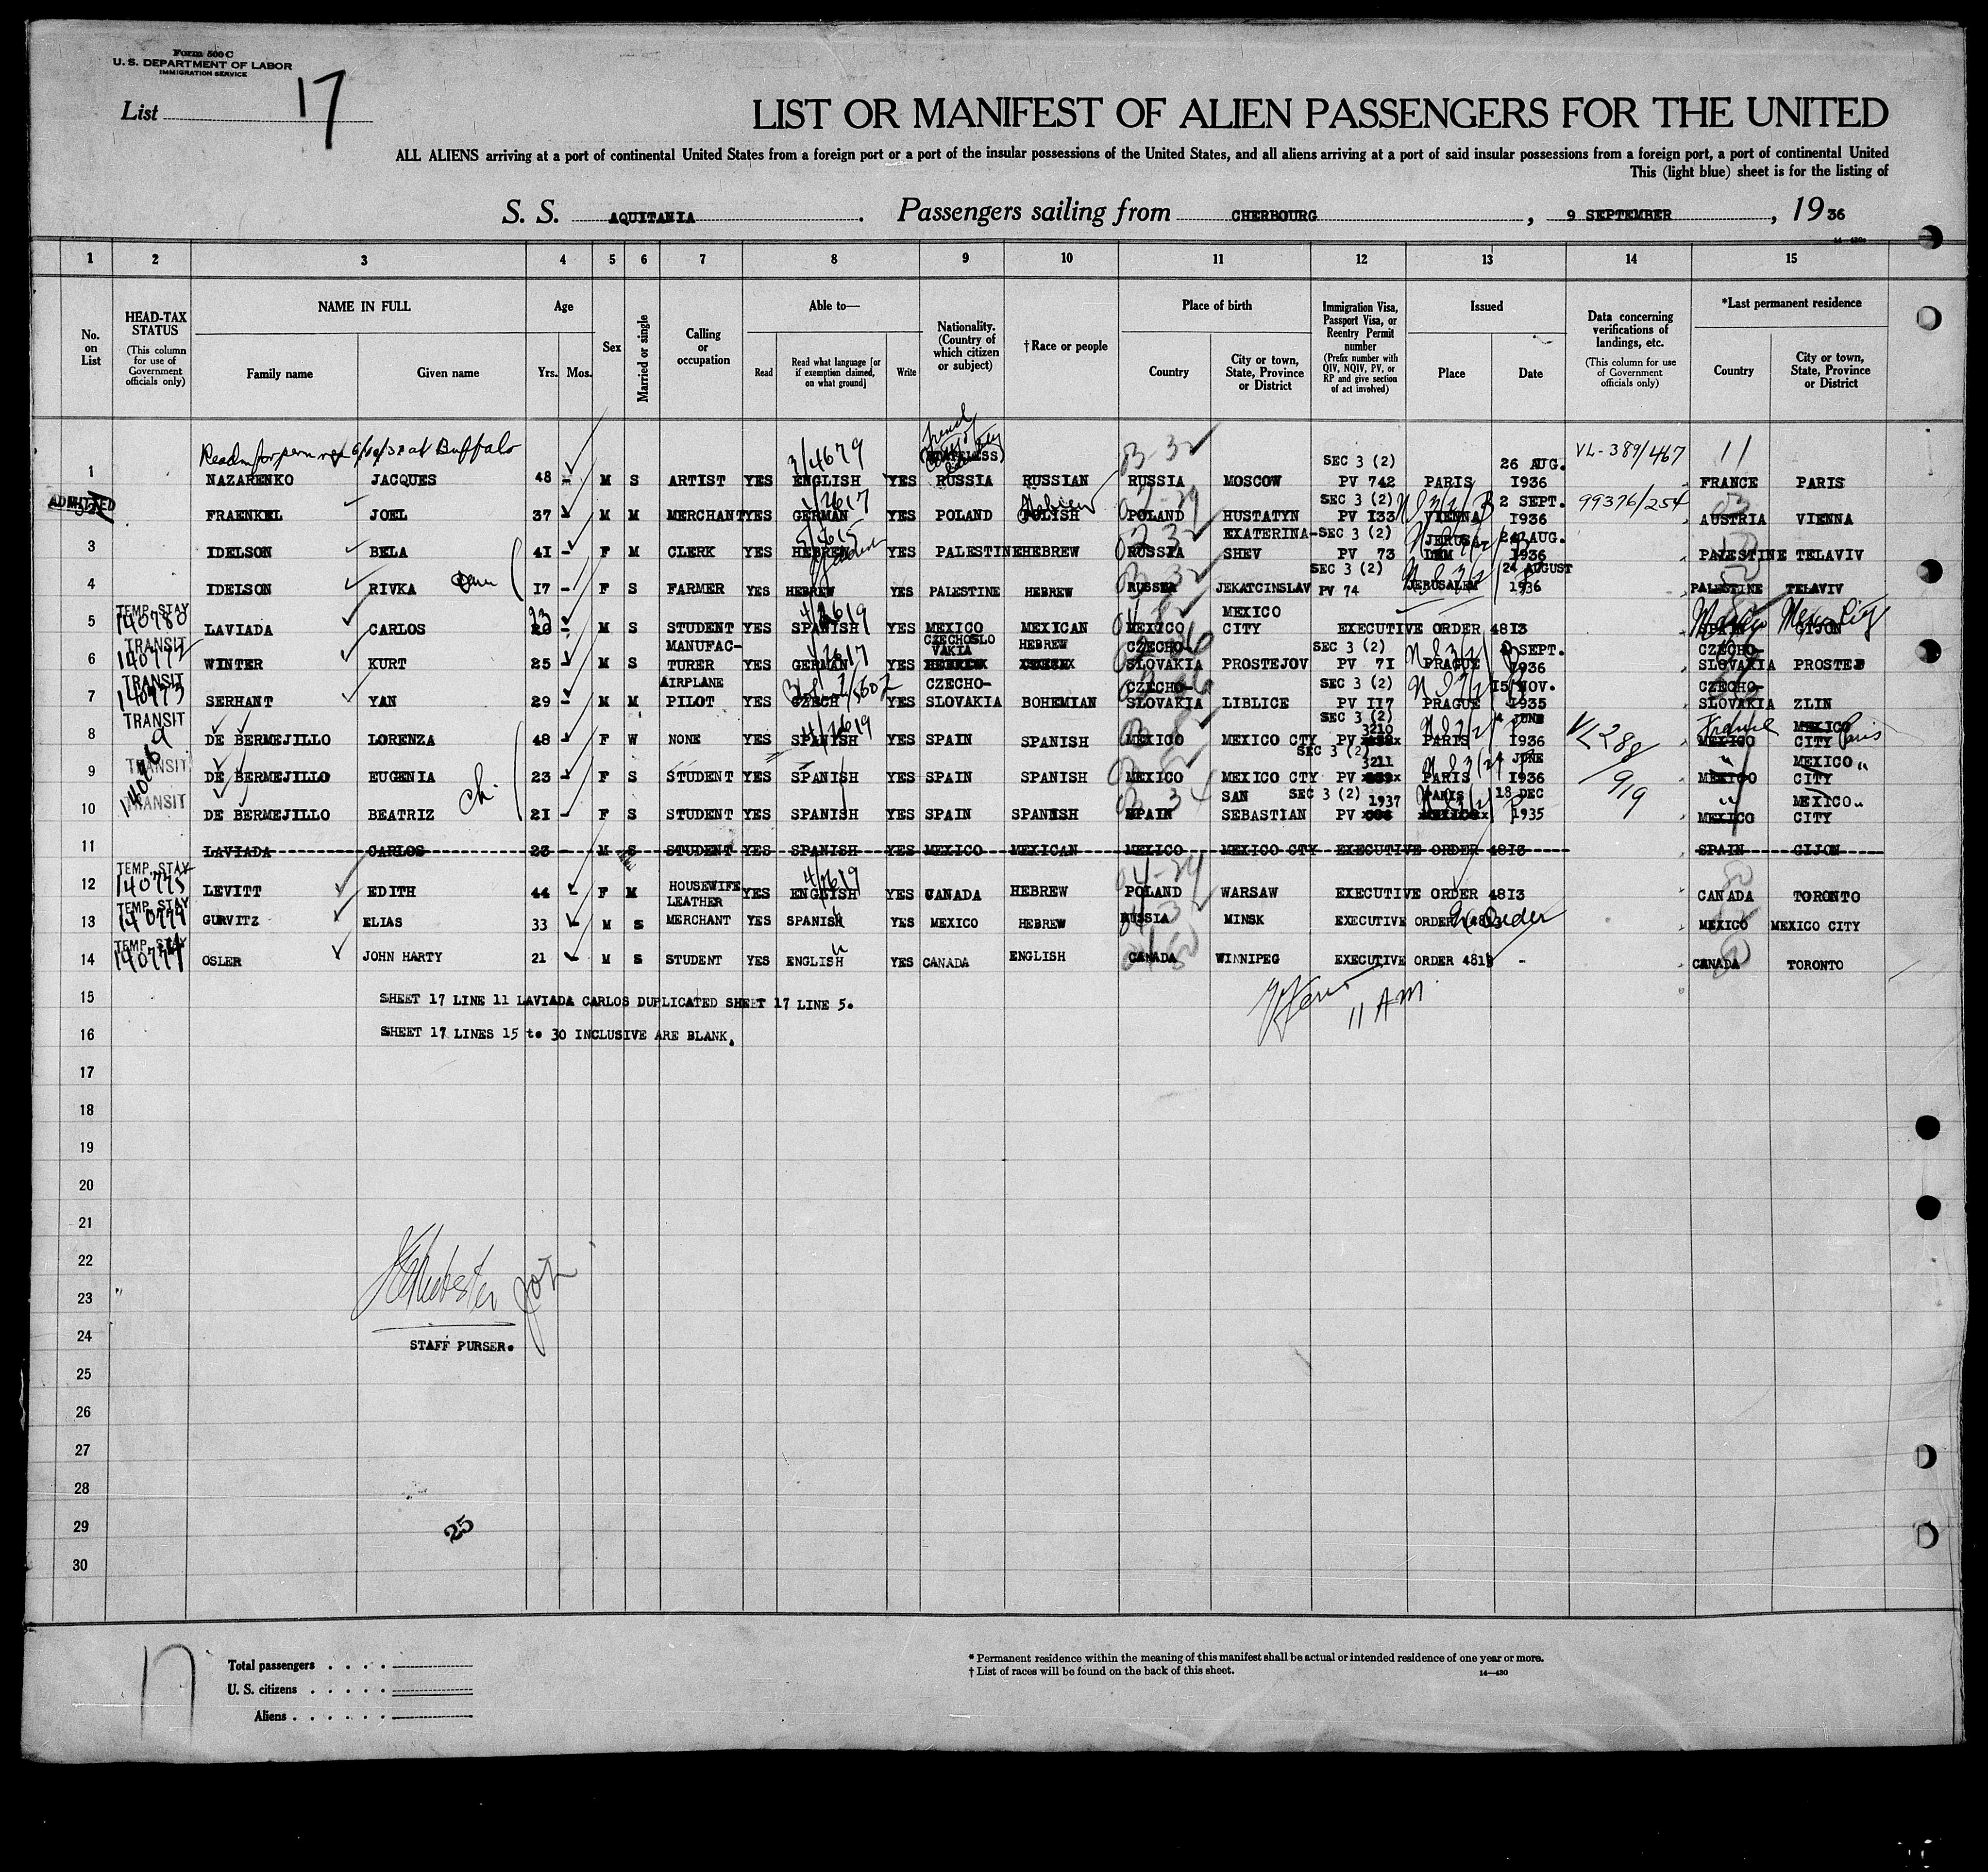 Form 500 C
U. S. DEPARTMENT OF LABOR
IMMIGRATION SERVICE
List 17
LIST OR MANIFEST OF ALIEN PASSENGERS FOR THE UNITED
ALL ALIENS arriving at a port of continental United States from a foreign port or a port of the insular possessions of the United States, and all aliens arriving at a port of said insular possessions from a foreign port, a port of continental United
This (light blue) sheet is for the listing of
S. S. AQUITANIA. Passengers sailing from CHERBOURG, 9 SEPTEMBER, 1936
1 2 3 4 5 6 7 8 9 10 11 12 13 14 15
No. on List
HEAD-TAX STATUS (This column for use of Government officials only)
NAME IN FULL Family name Given name
Age Yrs. Mos.
Sex
Married or single
Calling or occupation
Able to— Read Read what language [or if exemption claimed, on what ground] Write
Nationality. (Country of which citizen or subject)
†Race or people
Place of birth Country City or town, State, Province or District
Immigration Visa, Passport Visa, or Reentry Permit number (Prefix number with QIV, NQIV, PV, or RP and give section of act involved)
Issued Place Date
Data concerning verifications of landings, etc. (This column for use of Government officials only)
*Last permanent residence Country City or town, State, Province or District
at Buffalo 3/4679 French VL-389/467 11
1 NAZARENKO JACQUES 48 - M S ARTIST YES ENGLISH YES RUSSIA RUSSIAN RUSSIA MOSCOW SEC 3 (2) PV 742 PARIS 26 AUG. 1936 FRANCE PARIS
ADMITTED FRAENKEL JOEL 37 M M MERCHANT YES GERMAN YES POLAND POLISH Hebrew POLAND HUSTATYN SEC 3 (2) PV 133 VIENNA 2 SEPT. 1936 99376/254 AUSTRIA VIENNA
3 IDELSON BELA 41 - F M CLERK YES HEBREW YES PALESTINE HEBREW RUSSIA EXATERINA-SHEV SEC 3 (2) PV 73 JERUSALEM 24 AUG. 1936 PALESTINE TELAVIV
4 IDELSON RIVKA 17 - F S FARMER YES HEBREW YES PALESTINE HEBREW RUSSIA JEKATCINSLAV SEC 3 (2) PV 74 JERUSALEM 24 AUGUST 1936 PALESTINE TELAVIV
5 TEMP. STAY 140780 LAVIADA CARLOS 23 20 - M S STUDENT YES SPANISH YES MEXICO MEXICAN MEXICO MEXICO CITY EXECUTIVE ORDER 4813 SPAIN GIJON Mexico Mexico City
6 TRANSIT WINTER KURT 25 - M S MANUFACTURER YES GERMAN YES CZECHOSLOVAKIA HEBREW CZECHO-SLOVAKIA PROSTEJOV SEC 3 (2) PV 71 PRAGUE SEPT. 1936 CZECHO-SLOVAKIA PROSTEJ
7 TRANSIT 140773 SERHANT YAN 29 - M M AIRPLANE PILOT YES CZECH YES CZECHO-SLOVAKIA BOHEMIAN CZECHO-SLOVAKIA LIBLICE SEC 3 (2) PV 117 PRAGUE 15 NOV. 1935 CZECHO-SLOVAKIA ZLIN
8 TRANSIT DE BERMEJILLO LORENZA 48 - F W NONE YES SPANISH YES SPAIN SPANISH MEXICO MEXICO CTY SEC 3 (2) PV 3210 PARIS 4 JUNE 1936 VL 288/919 France MEXICO MEXICO CITY Paris
9 TRANSIT DE BERMEJILLO EUGENIA 23 - F S STUDENT YES SPANISH YES SPAIN SPANISH MEXICO MEXICO CTY SEC 3 (2) PV 3211 PARIS JUNE 1936 MEXICO MEXICO CITY
10 TRANSIT DE BERMEJILLO BEATRIZ 21 - F S STUDENT YES SPANISH YES SPAIN SPANISH SPAIN SAN SEBASTIAN SEC 3 (2) PV 1937 PARIS 18 DEC 1935 MEXICO MEXICO CITY
11 LAVIADA CARLOS 23 - M S STUDENT YES SPANISH YES MEXICO MEXICAN MEXICO MEXICO CTY EXECUTIVE ORDER 4813 SPAIN GIJON
12 TEMP. STAY 140775 LEVITT EDITH 44 - F M HOUSEWIFE YES ENGLISH YES CANADA HEBREW POLAND WARSAW EXECUTIVE ORDER 4813 CANADA TORONTO
13 TEMP. STAY GURVITZ ELIAS 33 M S LEATHER MERCHANT YES SPANISH YES MEXICO HEBREW RUSSIA MINSK EXECUTIVE ORDER 4813 MEXICO MEXICO CITY
14 TEMP. STAY 140774 OSLER JOHN HARTY 21 M S STUDENT YES ENGLISH YES CANADA ENGLISH CANADA WINNIPEG EXECUTIVE ORDER 4813 - CANADA TORONTO
15 SHEET 17 LINE 11 LAVIADA CARLOS DUPLICATED SHEET 17 LINE 5.
11 AM
16 SHEET 17 LINES 15 to 30 INCLUSIVE ARE BLANK.
17
18
19
20
21
22
23
24 STAFF PURSER.
25
26
27
28
29 25
30
17
Total passengers
U. S. citizens
Aliens
* Permanent residence within the meaning of this manifest shall be actual or intended residence of one year or more.
† List of races will be found on the back of this sheet. 14—430